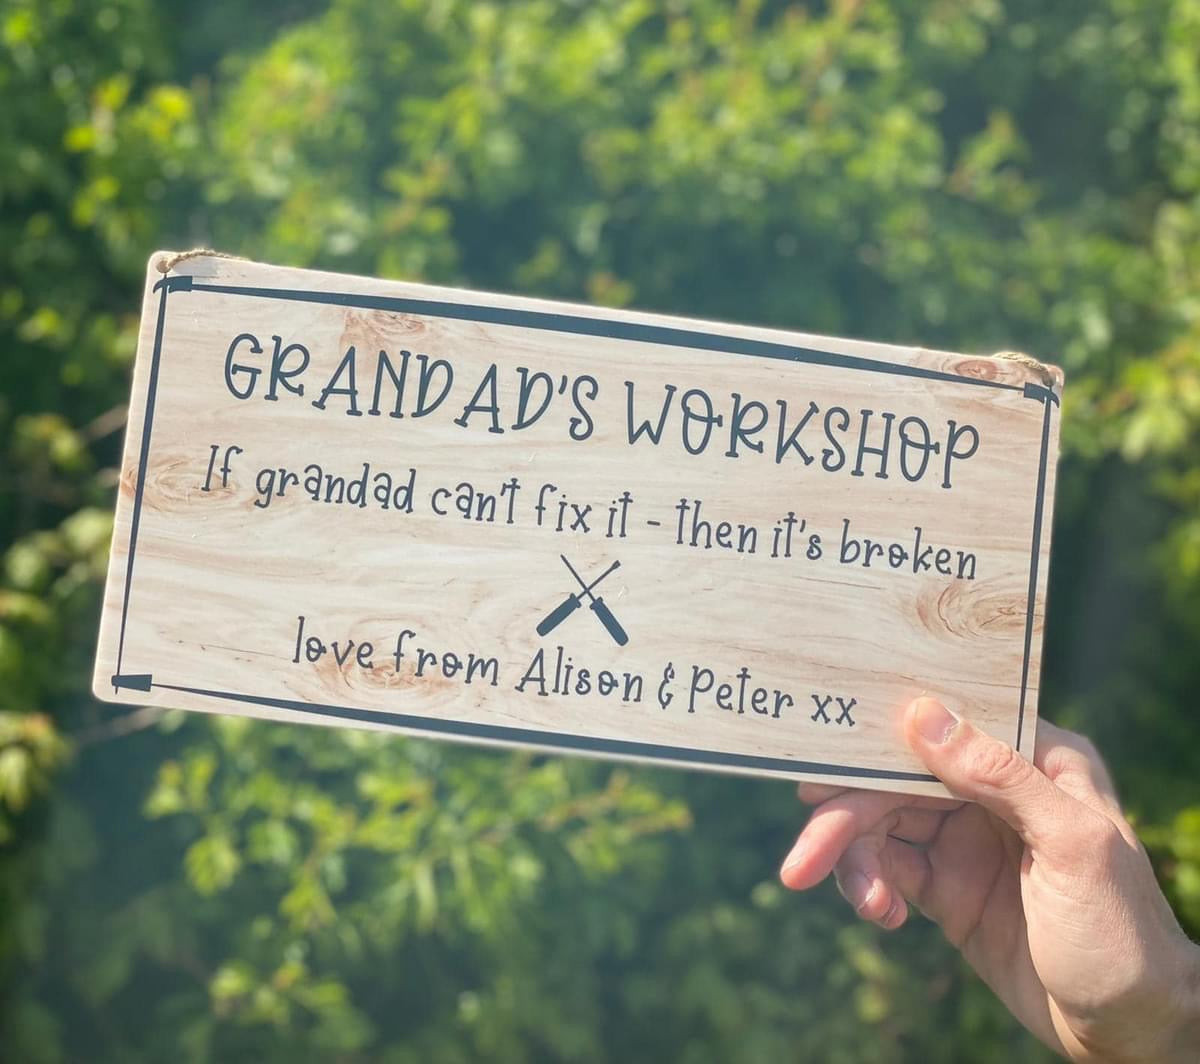 GRANDAD'S WORKSHOP
If grandad can't fix it - then it's broken
love from Alison & Peter xx